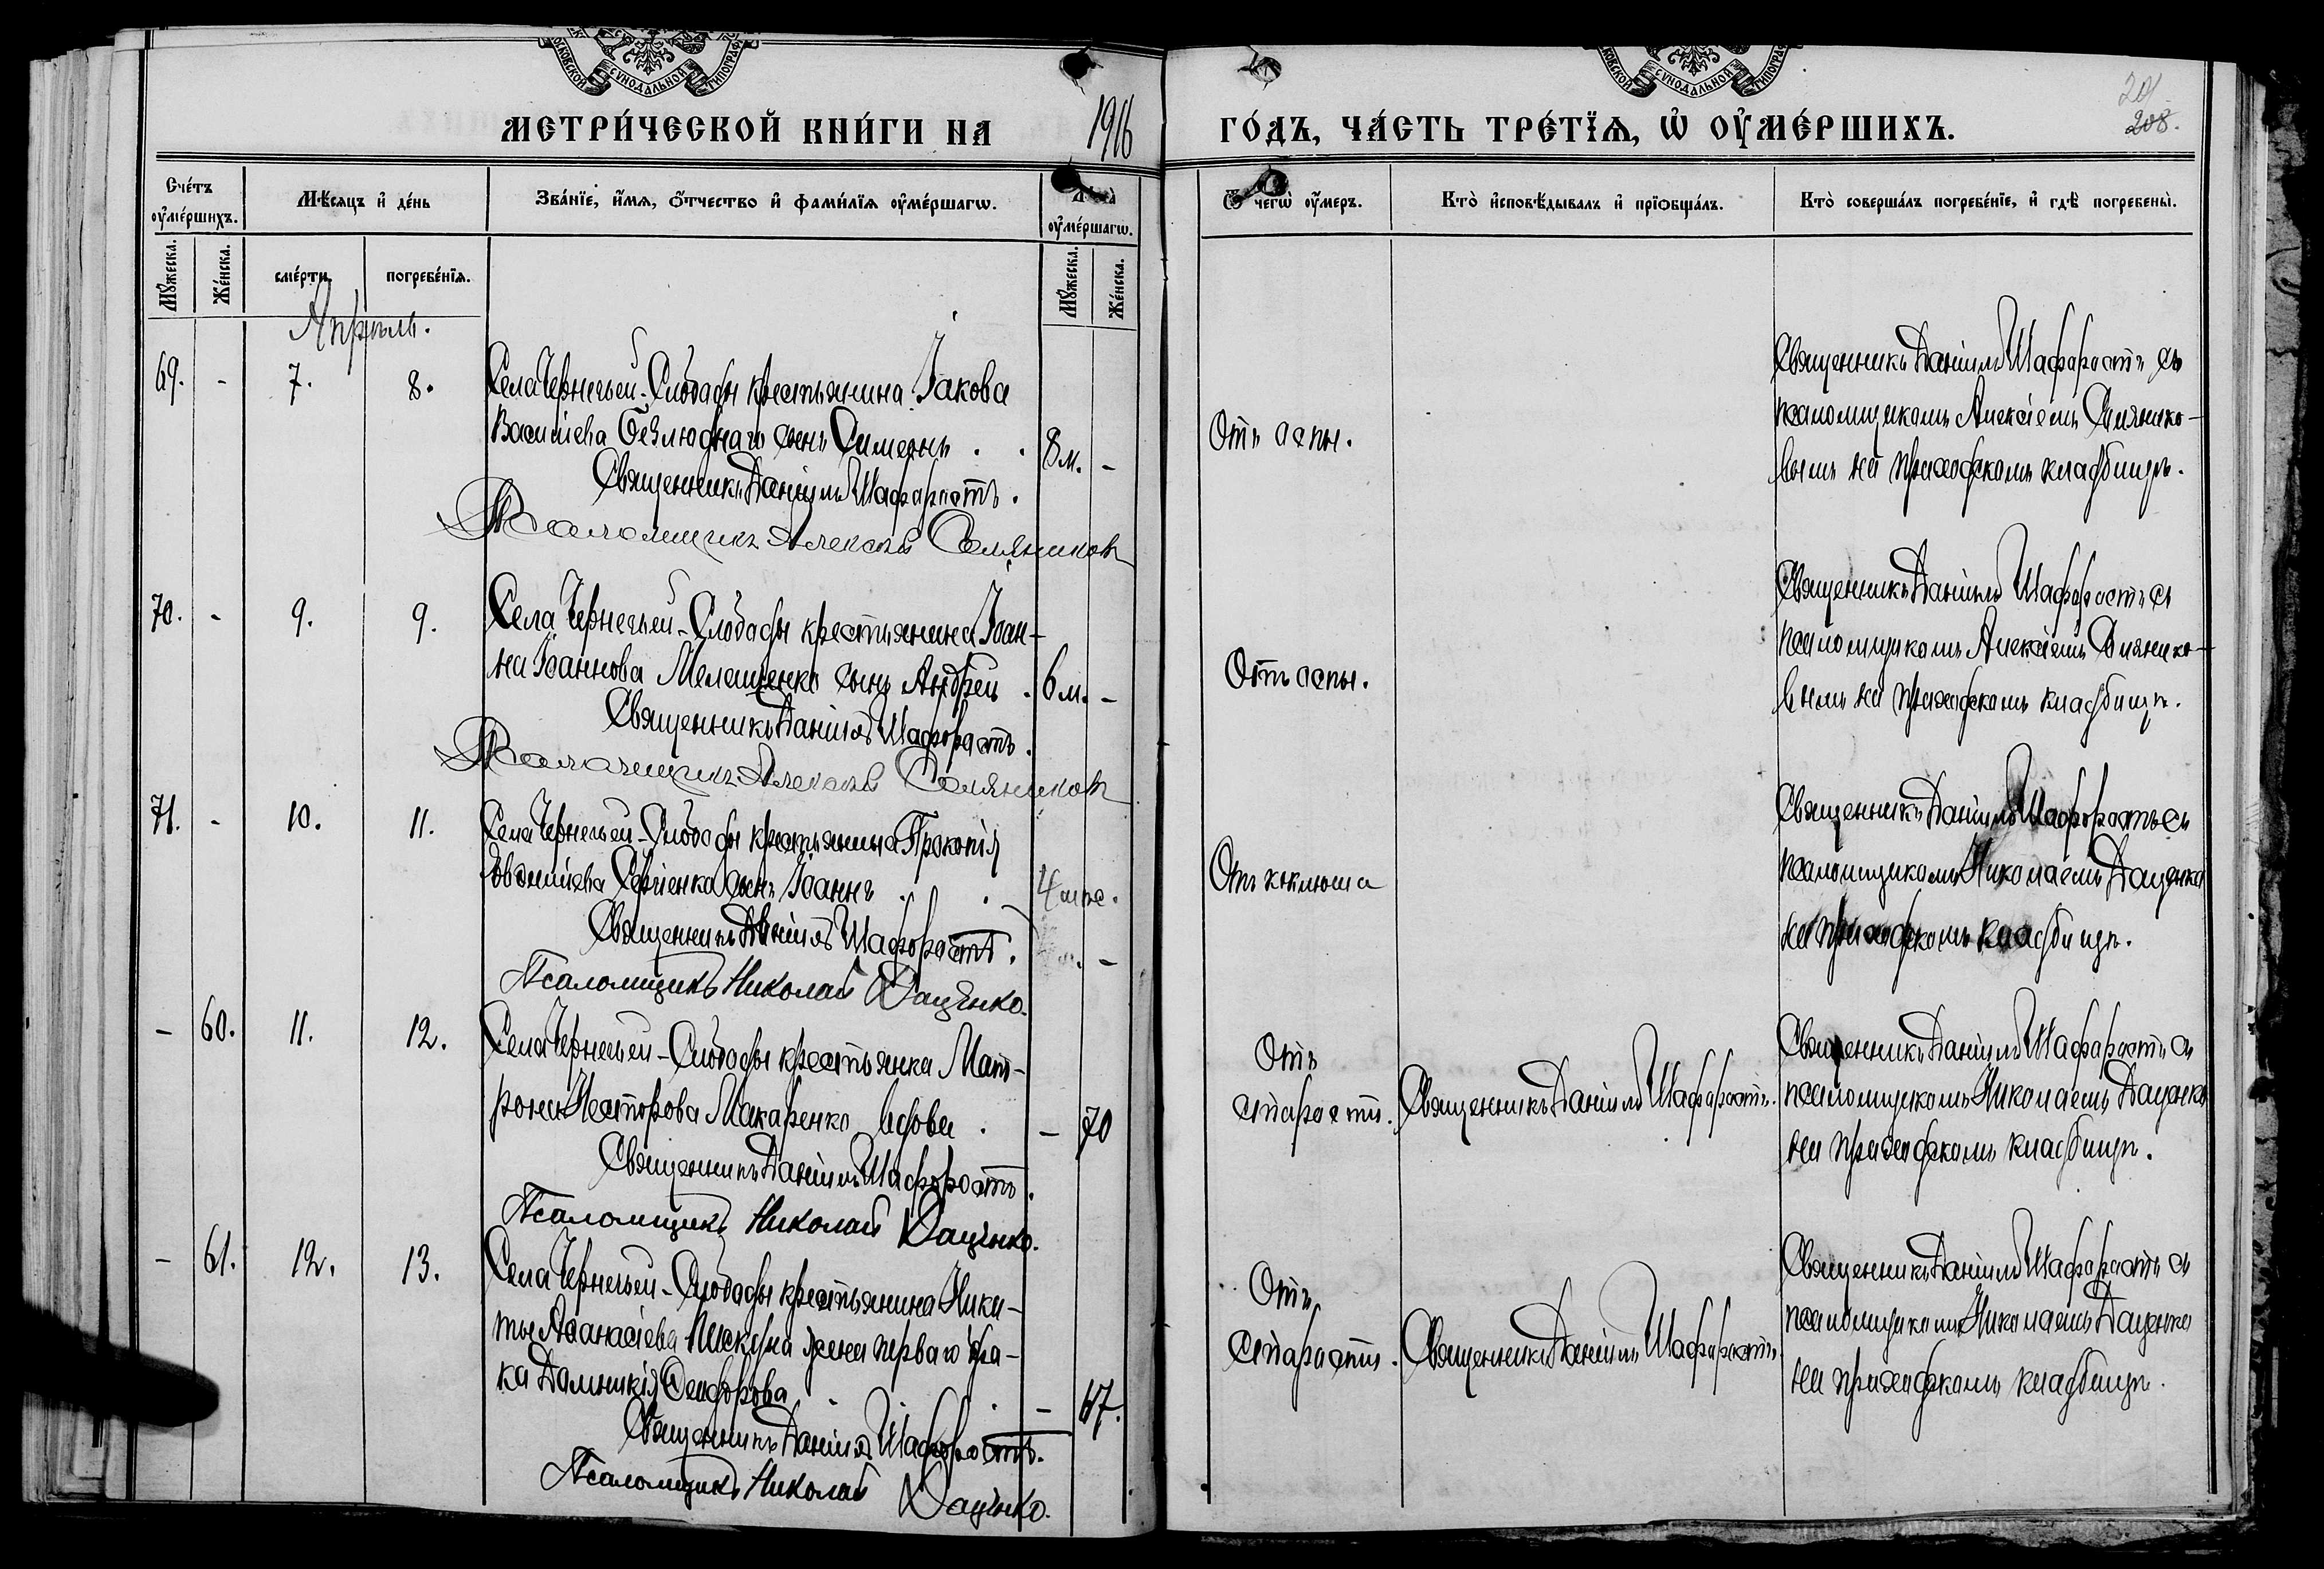 МЕТРИ́ЧЕСКОЙ КНИ́ГИ НА 1916
ГО́ДЪ, ЧА́СТЬ ТРЕ́ТЇѦ, Ѡ҆ ОУ҆МЕ́РШИХЪ.
201
208.
СУНОДАЛЬНОЙ
СУНОДАЛЬНОЙ
Сче́тъ оу҆ме́ршихъ.
Мѣ́сѧцъ и҆ де́нь
Зва́нїе, и҆́мѧ, ѻ҆́тчество и҆ фами́лїѧ оу҆ме́ршагѡ.
оу҆ме́ршагѡ.
Ѿ чегѡ̀ оу҆́меръ.
Кто̀ и҆сповѣ́дывалъ и҆ прїѡбща́лъ.
Кто̀ соверша́лъ погребе́нїе, и҆ гдѣ̀ погребены̀.
Мꙋ́жеска.
Же́нска.
сме́рти.
погребе́нїѧ.
Мꙋ́жеска.
Же́нска.
Апрѣль.
69. - 7. 8.
Села Чернечьей-Слободы крестьянина Іакова
Василіева Безлюднаго сынъ Симеонъ . . 8 м. -
Священникъ Даніилъ Шафорость.
Псаломщикъ Алексѣй Семяников
Отъ оспы.
Священникъ Даніилъ Шафорость съ
псаломщикомъ Алексѣемъ Семянико-
вымъ на приходскомъ кладбищѣ.
70. - 9. 9.
Села Чернечьей-Слободы крестьянина Іоан-
на Іоаннова Мелащенко сынъ Андрей . 6 м. -
Священникъ Даніилъ Шафорость.
Псаломщикъ Алексѣй Семяников
Отъ оспы.
Священникъ Даніилъ Шафорость съ
псаломщикомъ Алексѣемъ Семянико-
вымъ на приходскомъ кладбищѣ.
71. - 10. 11.
Села Чернечьей-Слободы крестьянина Прокопія
Сергіенка сынъ Іоаннъ . . -
Священникъ Даніилъ Шафорость.
Псаломщикъ Николай Даценко.
Отъ коклюша
Священникъ Даніилъ Шафорость съ
псаломщикомъ Николаемъ Даценко
на приходскомъ кладбищѣ.
- 60. 11. 12.
Села Чернечьей-Слободы крестьянка Мат-
рона Несторова Макаренко вдова . - 70
Священникъ Даніилъ Шафорость.
Псаломщикъ Николай Даценко.
Отъ
старости.
Священникъ Даніилъ Шафорость.
Священникъ Даніилъ Шафорость съ
псаломщикомъ Николаемъ Даценко
на приходскомъ кладбищѣ.
- 61. 12. 13.
Села Чернечьей-Слободы крестьянина Ники-
ты Аѳанасіева Пискуна жена перваго бра-
ка Домникія Ѳеодорова . . - 67.
Священникъ Даніилъ Шафорость.
Псаломщикъ Николай Даценко.
Отъ
старости.
Священникъ Даніилъ Шафорость.
Священникъ Даніилъ Шафорость съ
псаломщикомъ Николаемъ Даценко
на приходскомъ кладбищѣ.